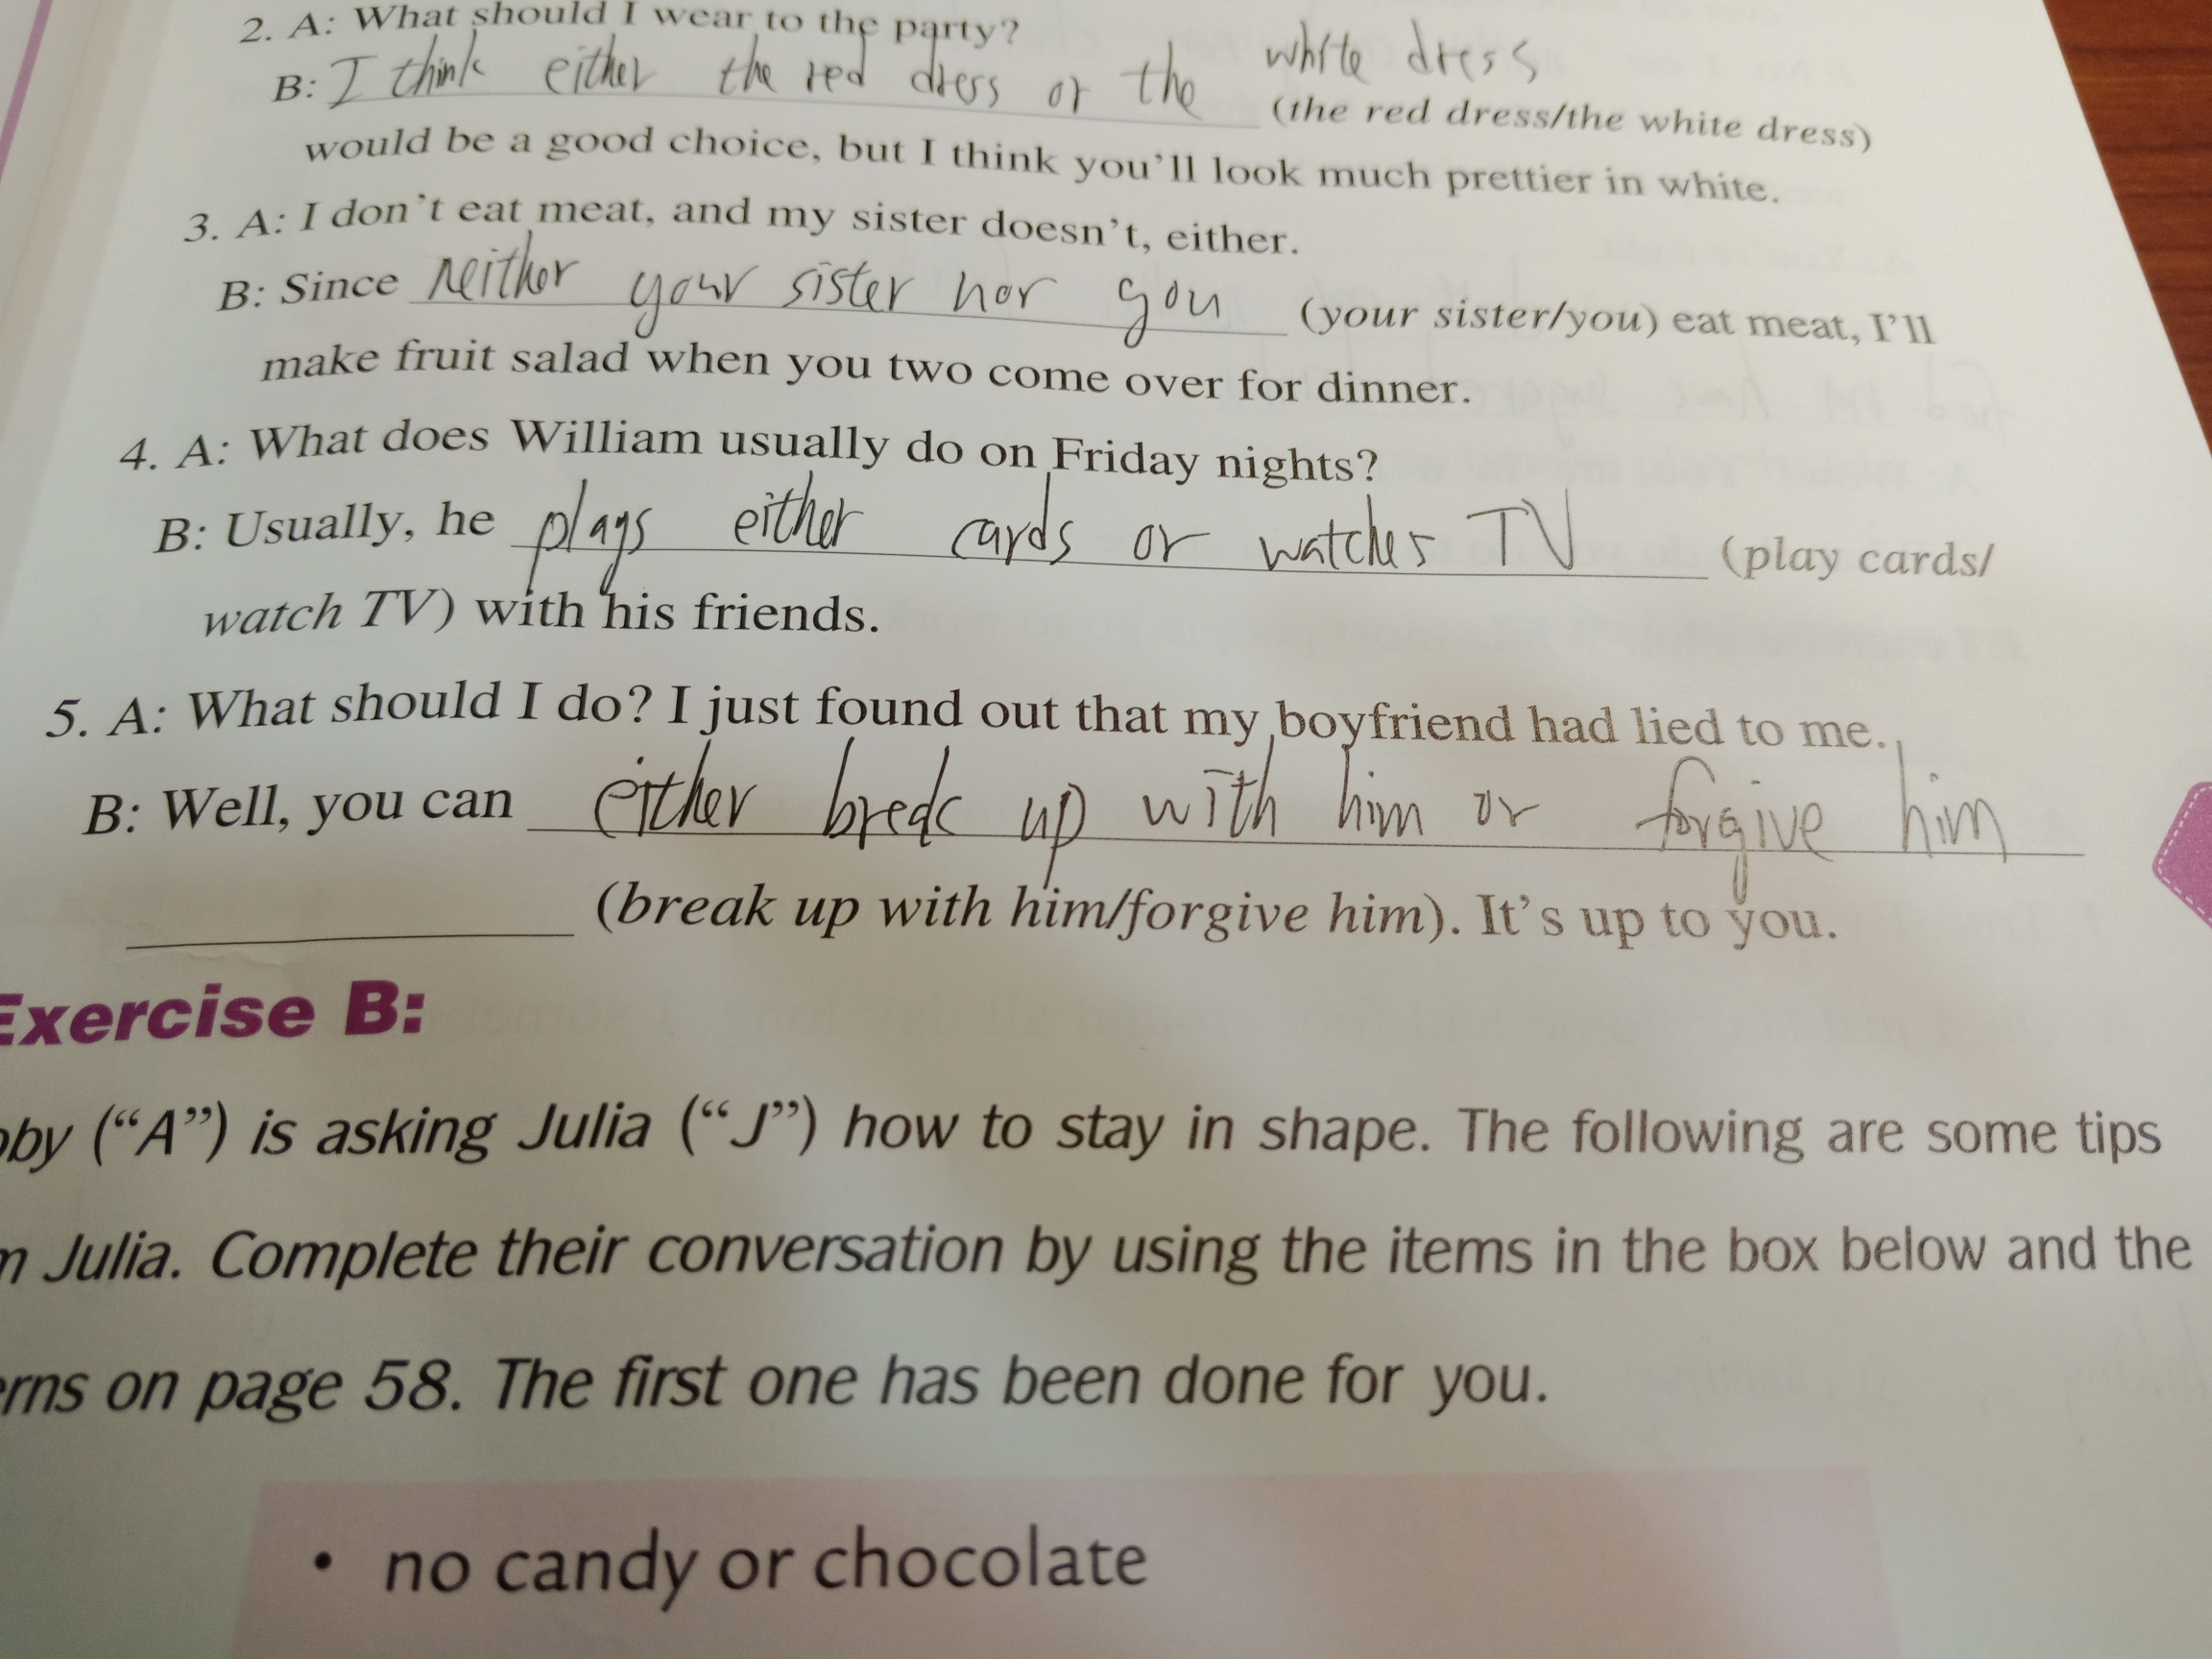 2. A: What should I wear to the party?
white dress
B: I think either the red dress or the (the red dress/the white dress)
would be a good choice, but I think you'll look much prettier in white.
3. A: I don't eat meat, and my sister doesn't, either.
B: Since neither your sister nor you (your sister/you) eat meat, I'll
make fruit salad when you two come over for dinner.
4. A: What does William usually do on Friday nights?
B: Usually, he plays either cards or watches TV (play cards/
watch TV) with his friends.
5. A: What should I do? I just found out that my boyfriend had lied to me.
B: Well, you can either up with him or forgive him
(break up with him/forgive him). It's up to you.
Exercise B:
by ("A") is asking Julia ("J") how to stay in shape. The following are some tips
m Julia. Complete their conversation by using the items in the box below and the
erns on page 58. The first one has been done for you.
• no candy or chocolate